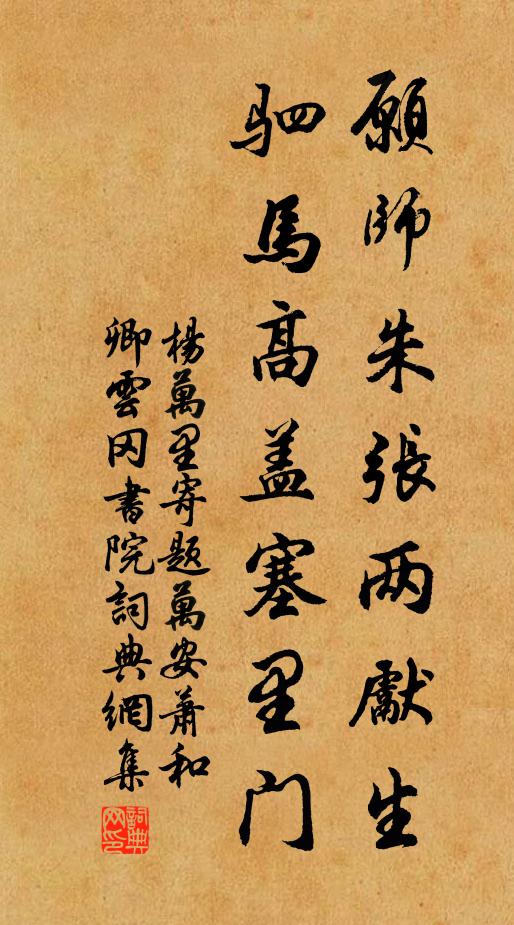 願師朱張两獻生
駟馬高盖塞里門
楊萬里寄題萬安蕭和
卿雲冈書院詞典網集
詞典网印